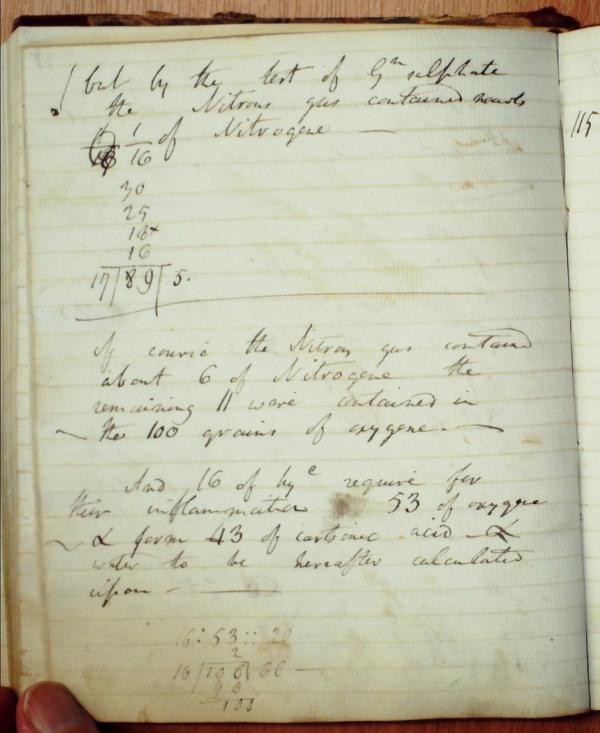 but by the test of Gn sulphate
the Nitrous gas contained
1/16 of Nitrogene —
30
25
18
16
17 | 89 | 5.
Of course the Nitrous gas contained
about 6 of Nitrogene the
remaining 11 were contained in
the 100 grains of oxygene. —
And 16 of hyc require for
their inflammation 53 of oxygene
& form 43 of carbonic acid — &
water to be hereafter calculated
upon —
16 : 53 :: 20
2
16 | 106 | 66 —
96
100
115